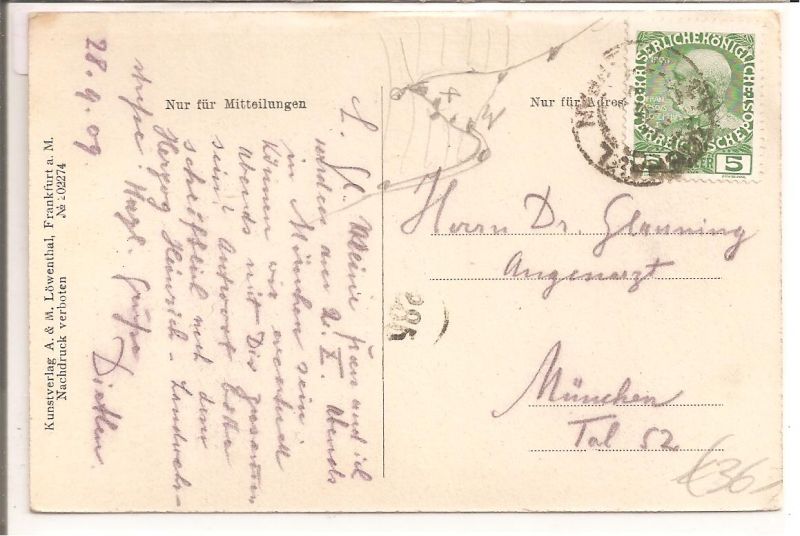 Nur für Mitteilungen
L. Gl. Meine Frau und ich
werden am 2. X. abends
in München sein
können wir eventuell
abends mit Dir zusammen
sein? Antwort bitte
nach dem
Herzog Heinrich-
Gruß
Dietlen.
28.9.09
Kunstverlag A. & M. Löwenthal, Frankfurt a. M.
№ 202274
Nachdruck verboten
Nur für Adres
KAISERLICHE KÖNIGLICHE
ÖSTERREICHISCHE POST
5 HELLER 5
Herrn Dr. Glauning
Augenarzt
München
Tal 52
36